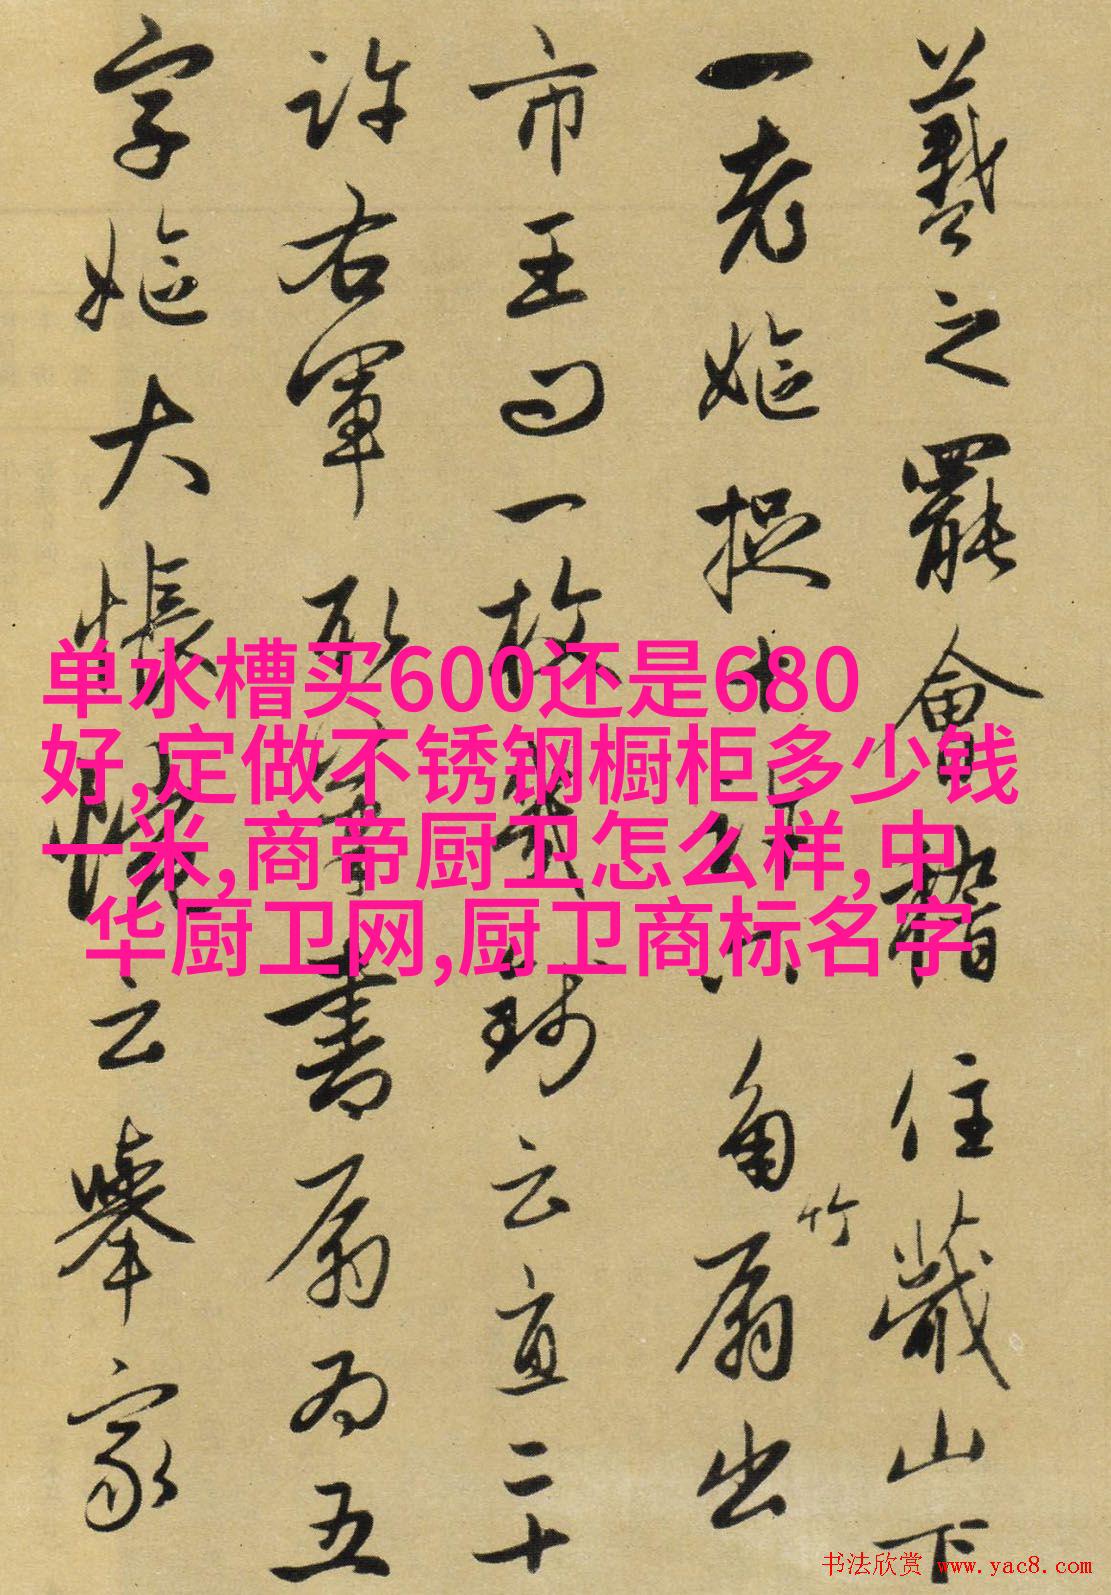 羲之罷會稽住蕺山下
一老嫗捉十許六角竹扇出
市王問一枚幾錢云直二十
許右軍取筆書扇為五
字嫗大悵惋云舉家
单水槽买600还是680
好,定做不锈钢橱柜多少钱
一米,商帝厨卫怎么样,中
华厨卫网,厨卫商标名字
书法欣赏 www.yac8.com